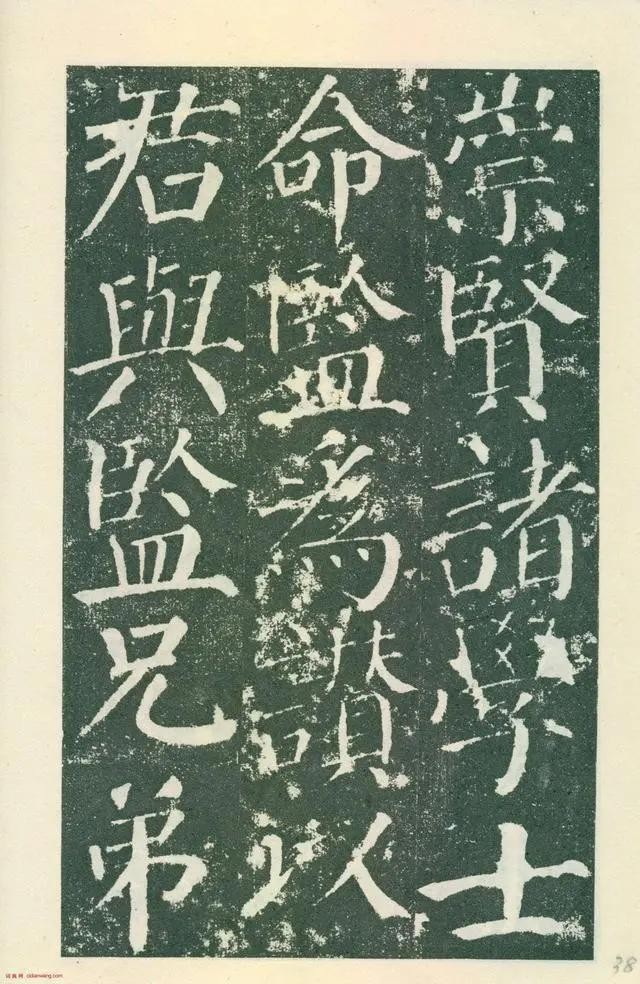 崇賢諸學士
命監為讚以
君與監兄弟
38
词典网 cidianwang.com